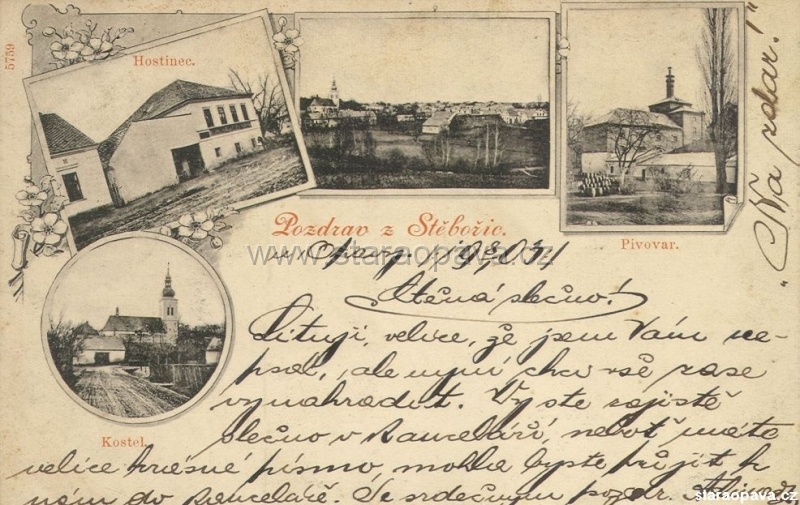 5759
Hostinec.
Pozdrav z Stěbořic.
Pivovar.
Kostel.
"Na zdar!"
www.staraopava.cz
u Opavy. 1904
Ctěná slečno!
Lituji, velice, že jsem Vám ne-
psal, ale nyní chci vše zase
vynahradit. Vy ste zajistě
slečno v kanceláři, neboť máte
velice krásné písmo, mohla byste přijít k
nám do kanceláře. Se srdečným pozdr.
staraopava.cz